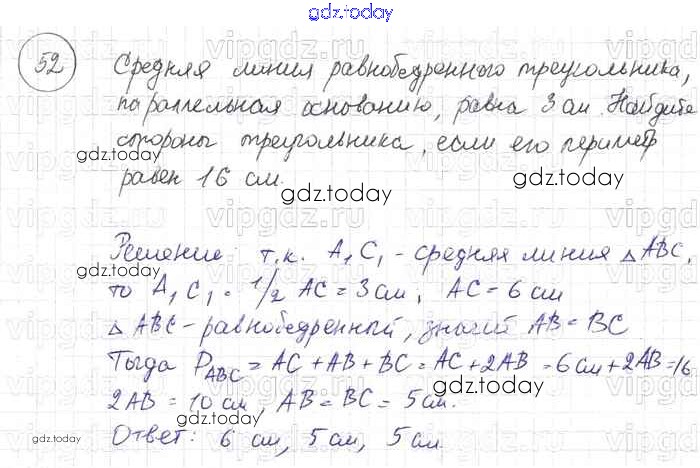 gdz.today
52 Средняя линия равнобедренного треугольника,
параллельная основанию, равна 3 см. Найдите
стороны треугольника, если его периметр
gdz.today
равен 16 см.
gdz.today
gdz.today
Решение: т.к. A₁C₁ - средняя линия △ABC,
gdz.today
то A₁C₁ = 1/2 AC = 3 см; AC = 6 см
△ABC - равнобедренный, значит AB = BC
Тогда P_ABC = AC + AB + BC = AC + 2AB = 6 см + 2AB = 16
gdz.today
2AB = 10 см, AB = BC = 5 см.
gdz.today
gdz.today
Ответ: 6 см, 5 см, 5 см
gdz.today
vipgdz.ru